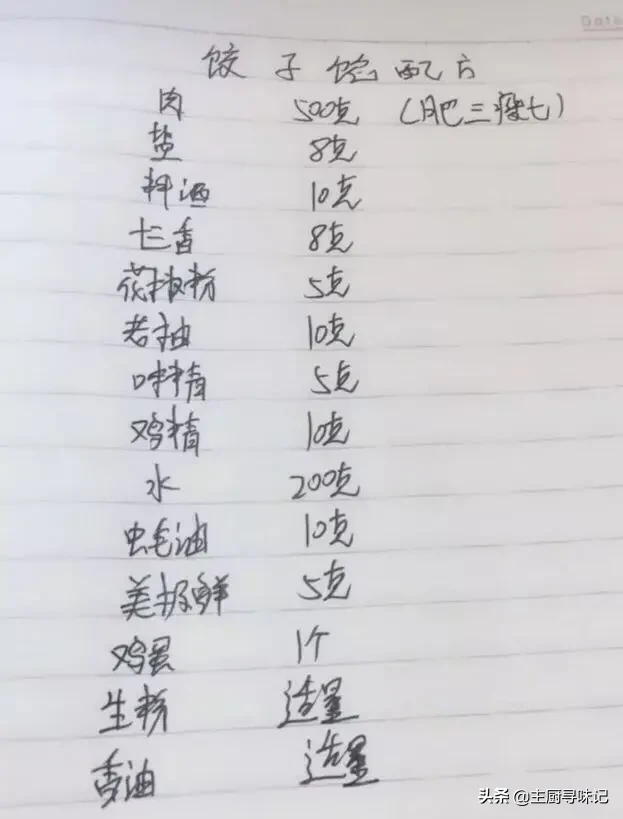 Date
饺子馅配方
肉 500克 (肥三瘦七)
盐 8克
料酒 10克
十三香 8克
花椒粉 5克
老抽 10克
味精 5克
鸡精 10克
水 200克
蚝油 10克
美极鲜 5克
鸡蛋 1个
生粉 适量
香油 适量
头条 @主厨寻味记